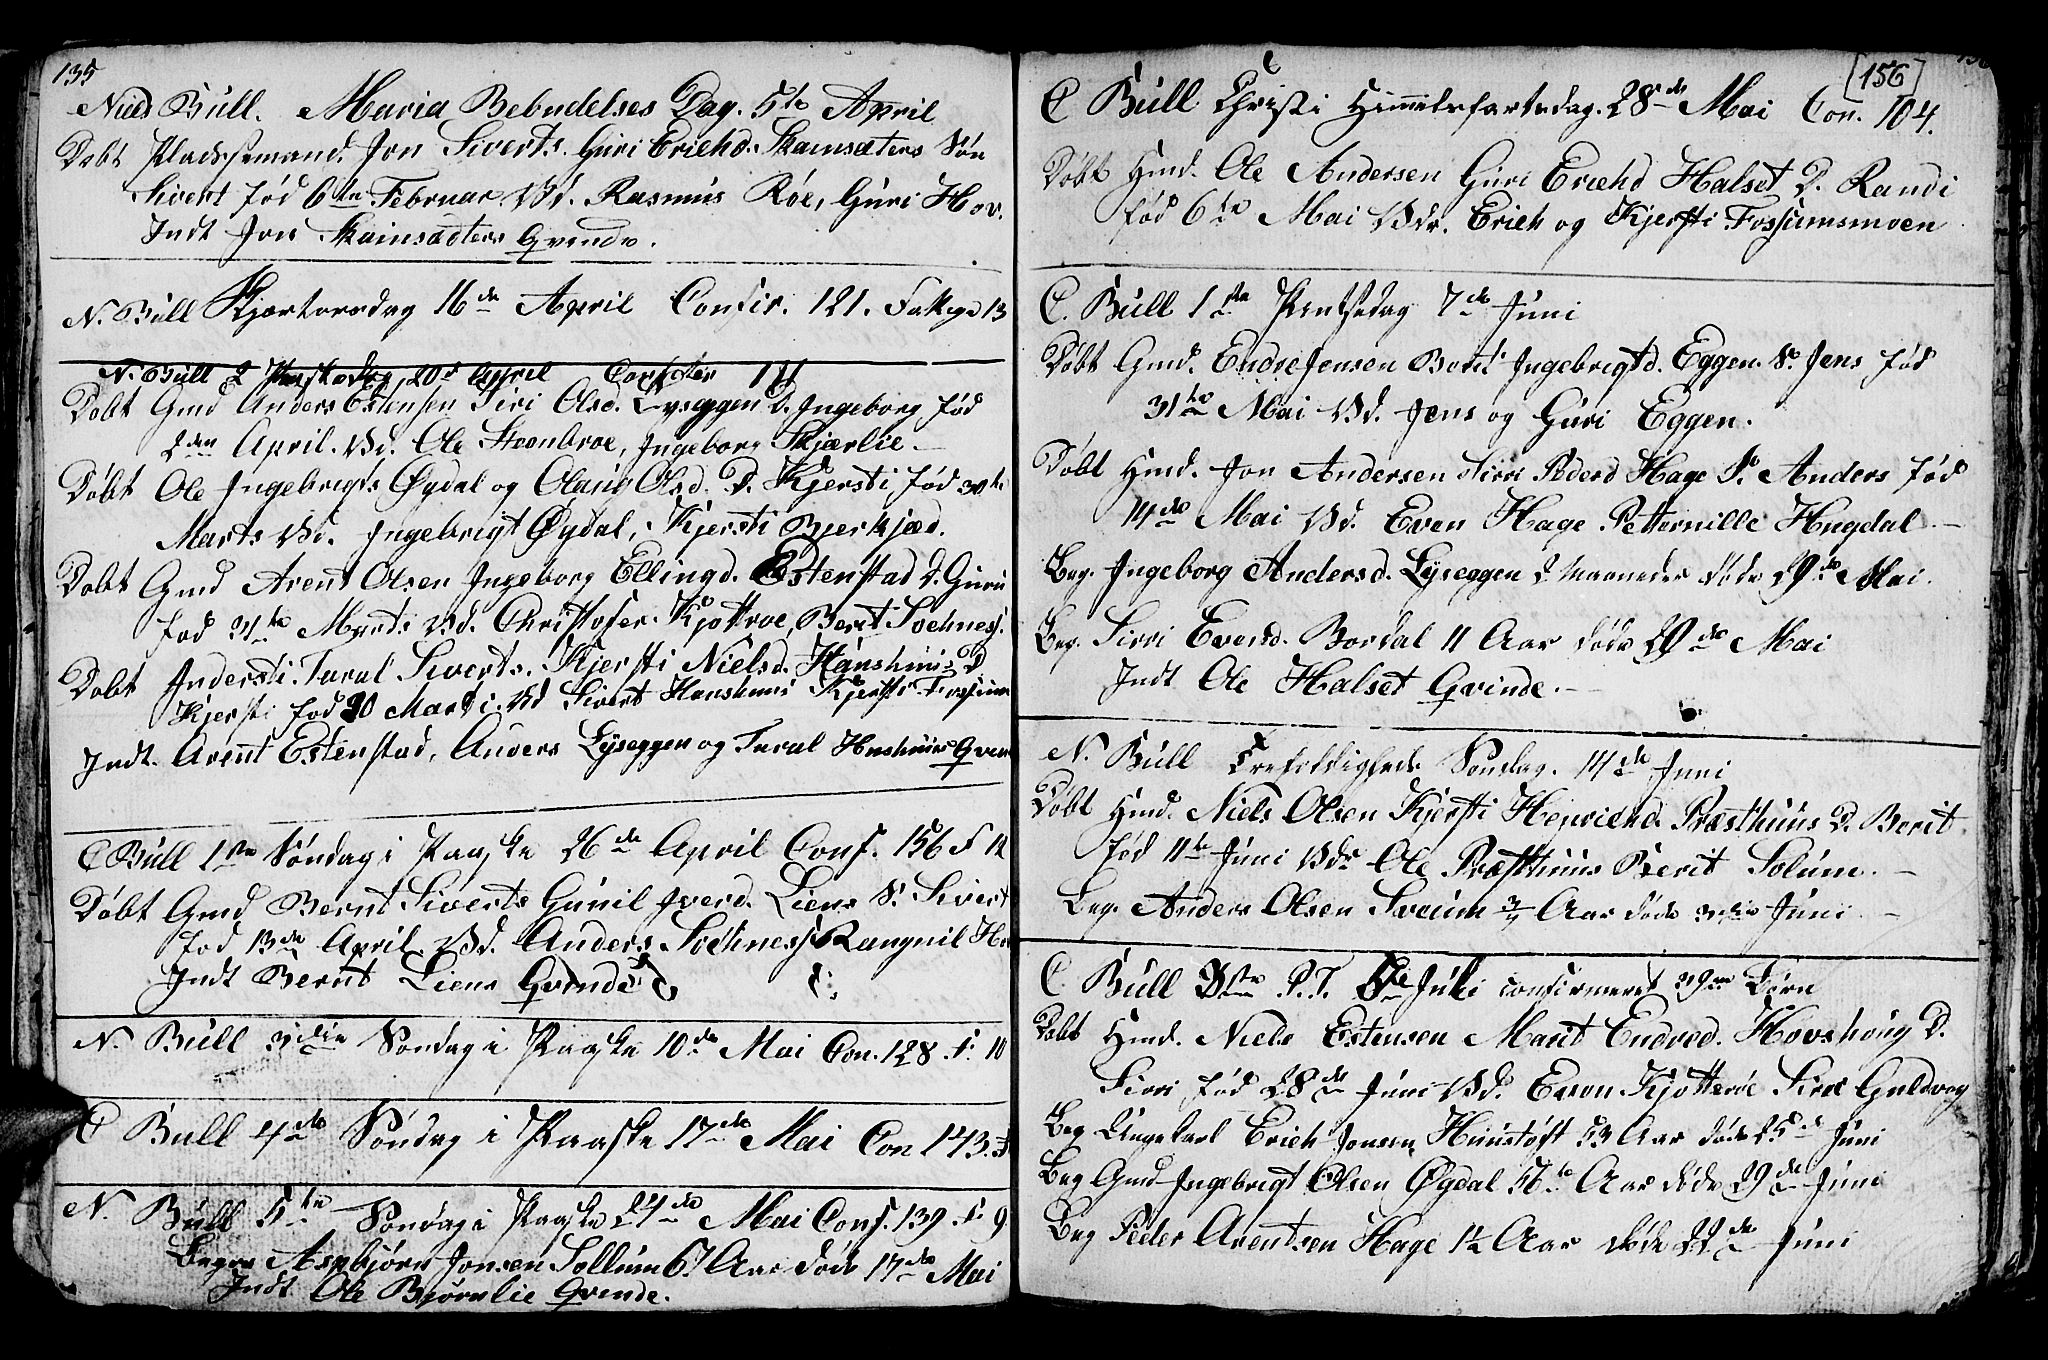 135
Niels Bull. Maria Bebudelses Dag. 5te April
Døbt Pladssemand. Jon Siverts. Guri Erichd. Skamsæters Søn
Sivert fød 6te Februar Vd. Rasmus Røe, Guri Hov.
Indt Jon Skamsæters Qvinde.
N. Bull Skjærtorsdag 16de April Confir. 121. F 13
N. Bull 2 Paaskedag 20de April 111
Døbt Gmd Anders Estensen Siri Olsd. Lyseggen D. Ingeborg fød
2den April. Vd. Ole Steenbroe, Ingeborg Skjærlie.
Døbt Ole Ingebrigts Øydal og Olaug Olsd. D. Kjersti fød 30te
Marts Vd. Ingebrigt Øydal, Kjersti Bjerkjæd.
Døbt Gmd Arent Olsen Ingeborg Ellingd. Estenstad D. Guru
fød 31te Marts Vd. Christofer Kjøttroe, Berit Sochness.
Døbt Indersti. Taral Siverts. Kjersti Nielsd. Hanshuus D
Kjersti fød 30 Marti. Vd Sivert Hanshuus Kjersti Fossum
Indt. Arent Estenstad, Anders Lyseggen og Taral Qvin
C Bull 1ste Søndag i Paaske 26de April Conf. 156 F 12
Døbt Gmd Bernt Siverts Gunil Iverd. Liens S. Sivert
fød 13de April. Vd. Anders Sochness Rangnil
Indt Bernt Liens Qvinde
N. Bull 3die Søndag i Paaske 10de Mai Con. 128. F. 10
C Bull 4de Søndag i Paaske 17de Mai Con 143.
N. Bull 5te Søndag i Paaske 24de Mai Conf. 139. F. 9
Begr Asbjørn Jonsen Sollum 67 Aar døde 17de Mai
Indt Ole Bjørnlie Qvinde.
156
C Bull Christi Himmelfartsdag. 28de Mai Con. 104.
Døbt Hmd. Ole Andersen Guri Erichd Halset D. Randi
fød 6te Mai Vdr. Erich og Kjersti Fossumsmoen
C. Bull 1ste Pintsedag 7de Juni
Døbt Gmd. Endre Jensen Borit Ingebrigtd. Eggen. S. Jens fød
31te Mai Vd. Jens og Guri Eggen.
Døbt Hmd. Jon Andersen Sirri Pederd Hage S. Anders fød
14de Mai Vd. Even Hage Petternille Hugdal.
Beg. Ingeborg Andersd. Lyseggen 2 Maaneder døde 29de Mai.
Beg. Sirri Evensd. Bordal 11 Aar døde 29de Mai
Indt Ole Halset Qvinde.
N. Bull Trefoldigheds Søndag. 14de Juni
Døbt Hmd. Niels Olsen Kjersti Præsthuus D. Berit
fød 11te Juni Vdr Ole Præsthuus Berit Solum.
Beg. Anders Olsen Sveum 3/4 Aar døde 3die Juni
C Bull P.T. Juli confirmeret 39 Børn
Døbt Hmd. Niels Estensen Marit Endred. Hovshoug D.
Sirri fød 28de Juni Vd. Even Kjøtteroe Siri Guldvog
Beg Ungekarl Erich Jonsen Huustøft 53 Aar døde 25de Juni
Beg Gmd Ingebrigt Olsen Øydal 56te Aar døde 29de Juni
Beg Peder Arentsen Hage 1½ Aar døde 22de Juni